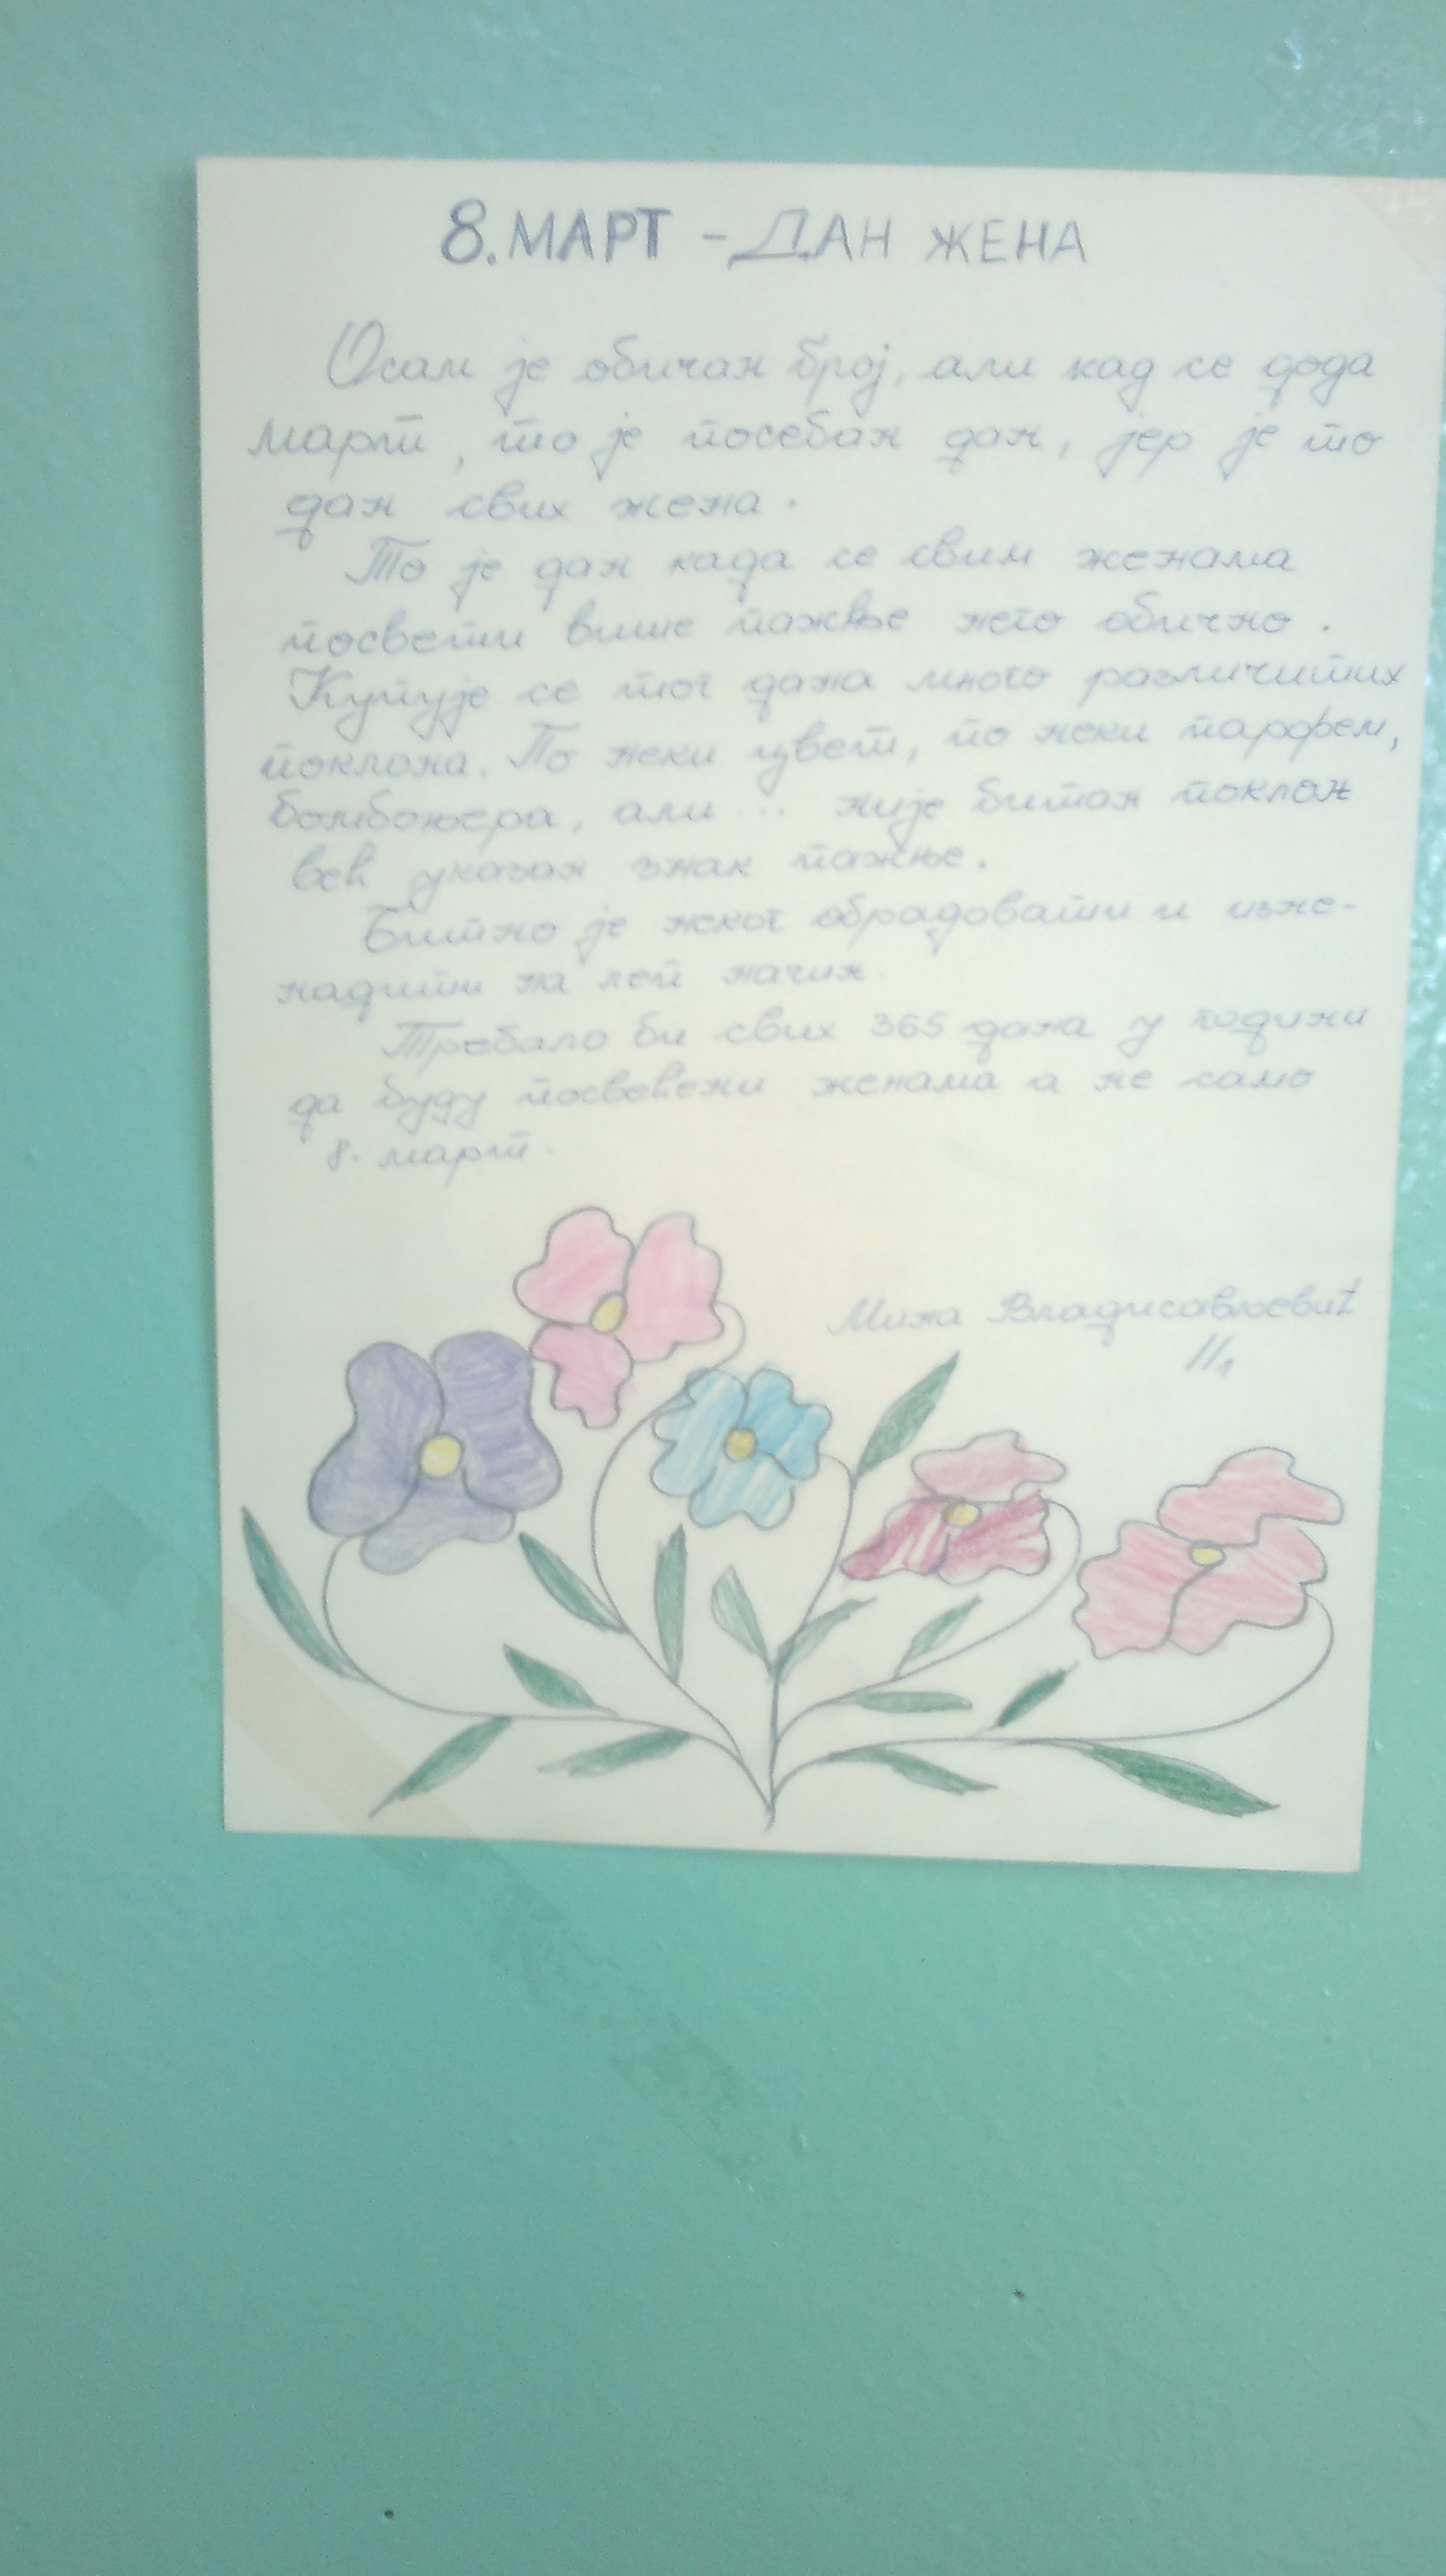 8. МАРТ - ДАН ЖЕНА
Осам је обичан број, али кад се дода
март, то је посебан дан, јер је то
дан свих жена.
То је дан када се свим женама
посвети више пажње него обично.
Купује се тог дана много различитих
поклона. По неки цвет, по неки парфем,
бомбоњера, али ... није битан поклон
већ указан знак пажње.
Битно је неког обрадовати и изне-
надити на леп начин.
Требало би свих 365 дана у години
да буду посвећени женама а не само
8. март.
Мина Владисављевић
II₁